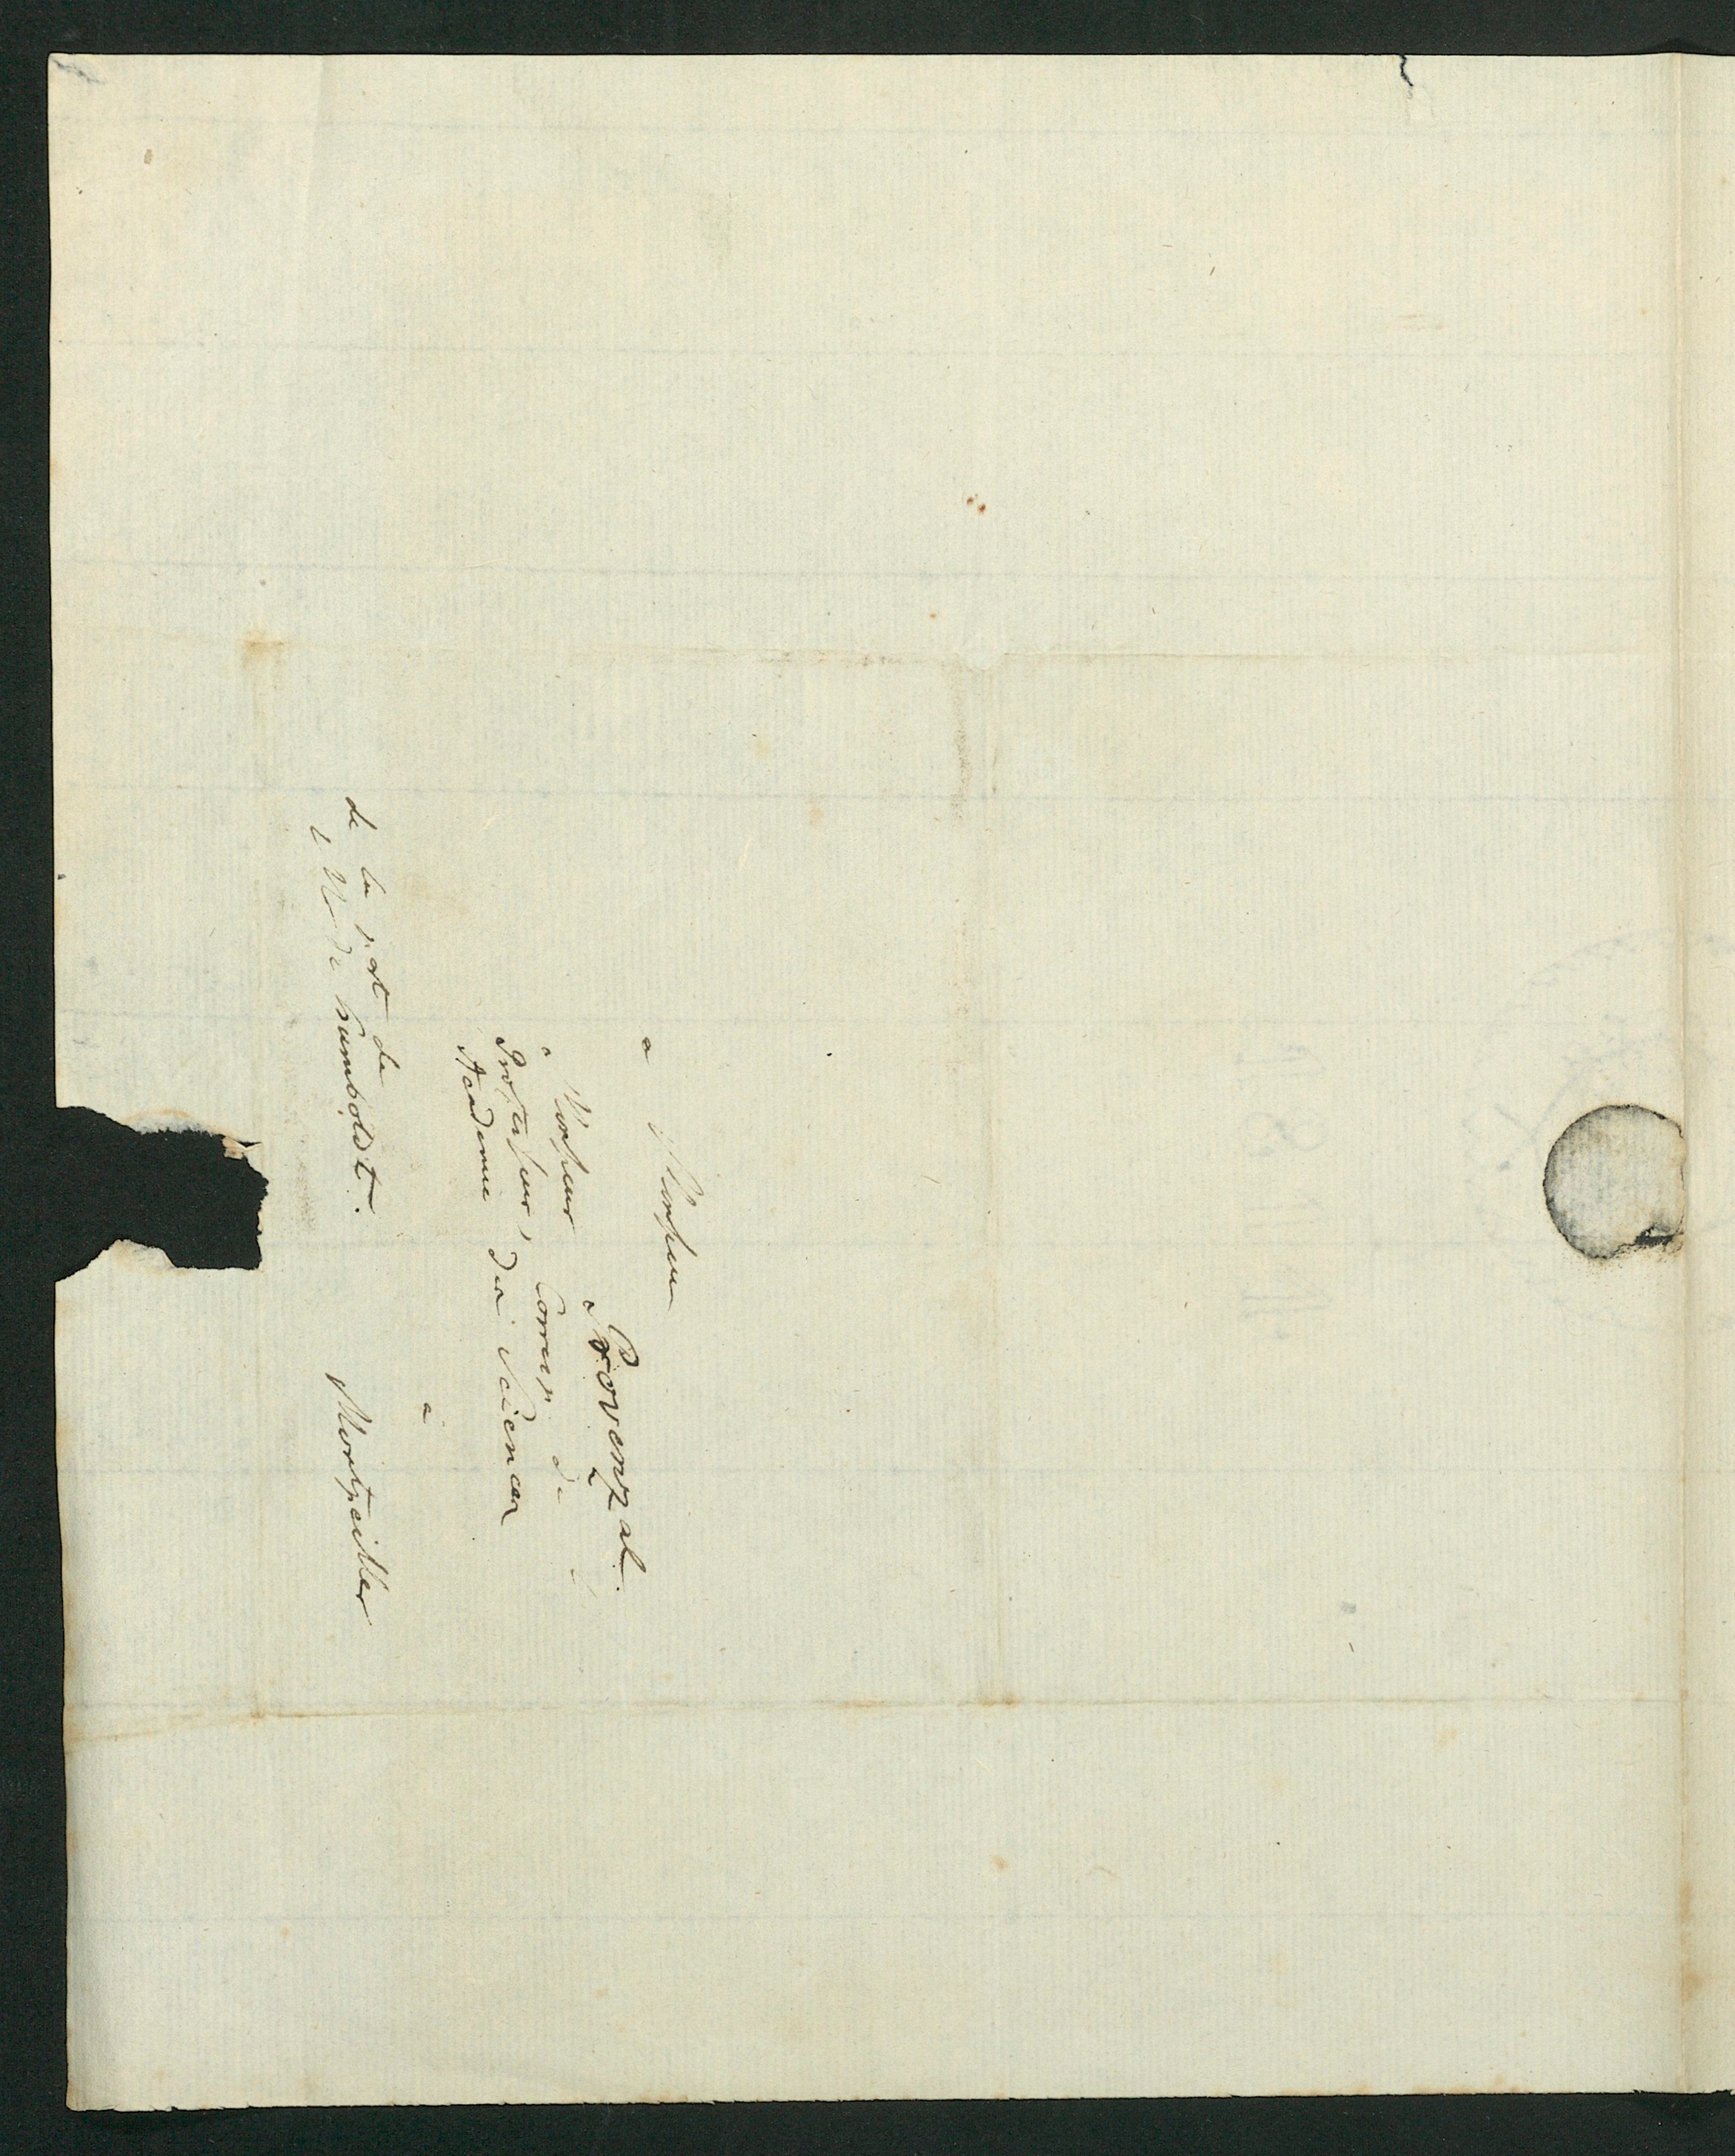 a Monsieur
Monsieur Provenzal.
Professeur, Corresp. de l'
Academie des Sciences
à
Montpellier
de la part de
Mr de Humboldt.